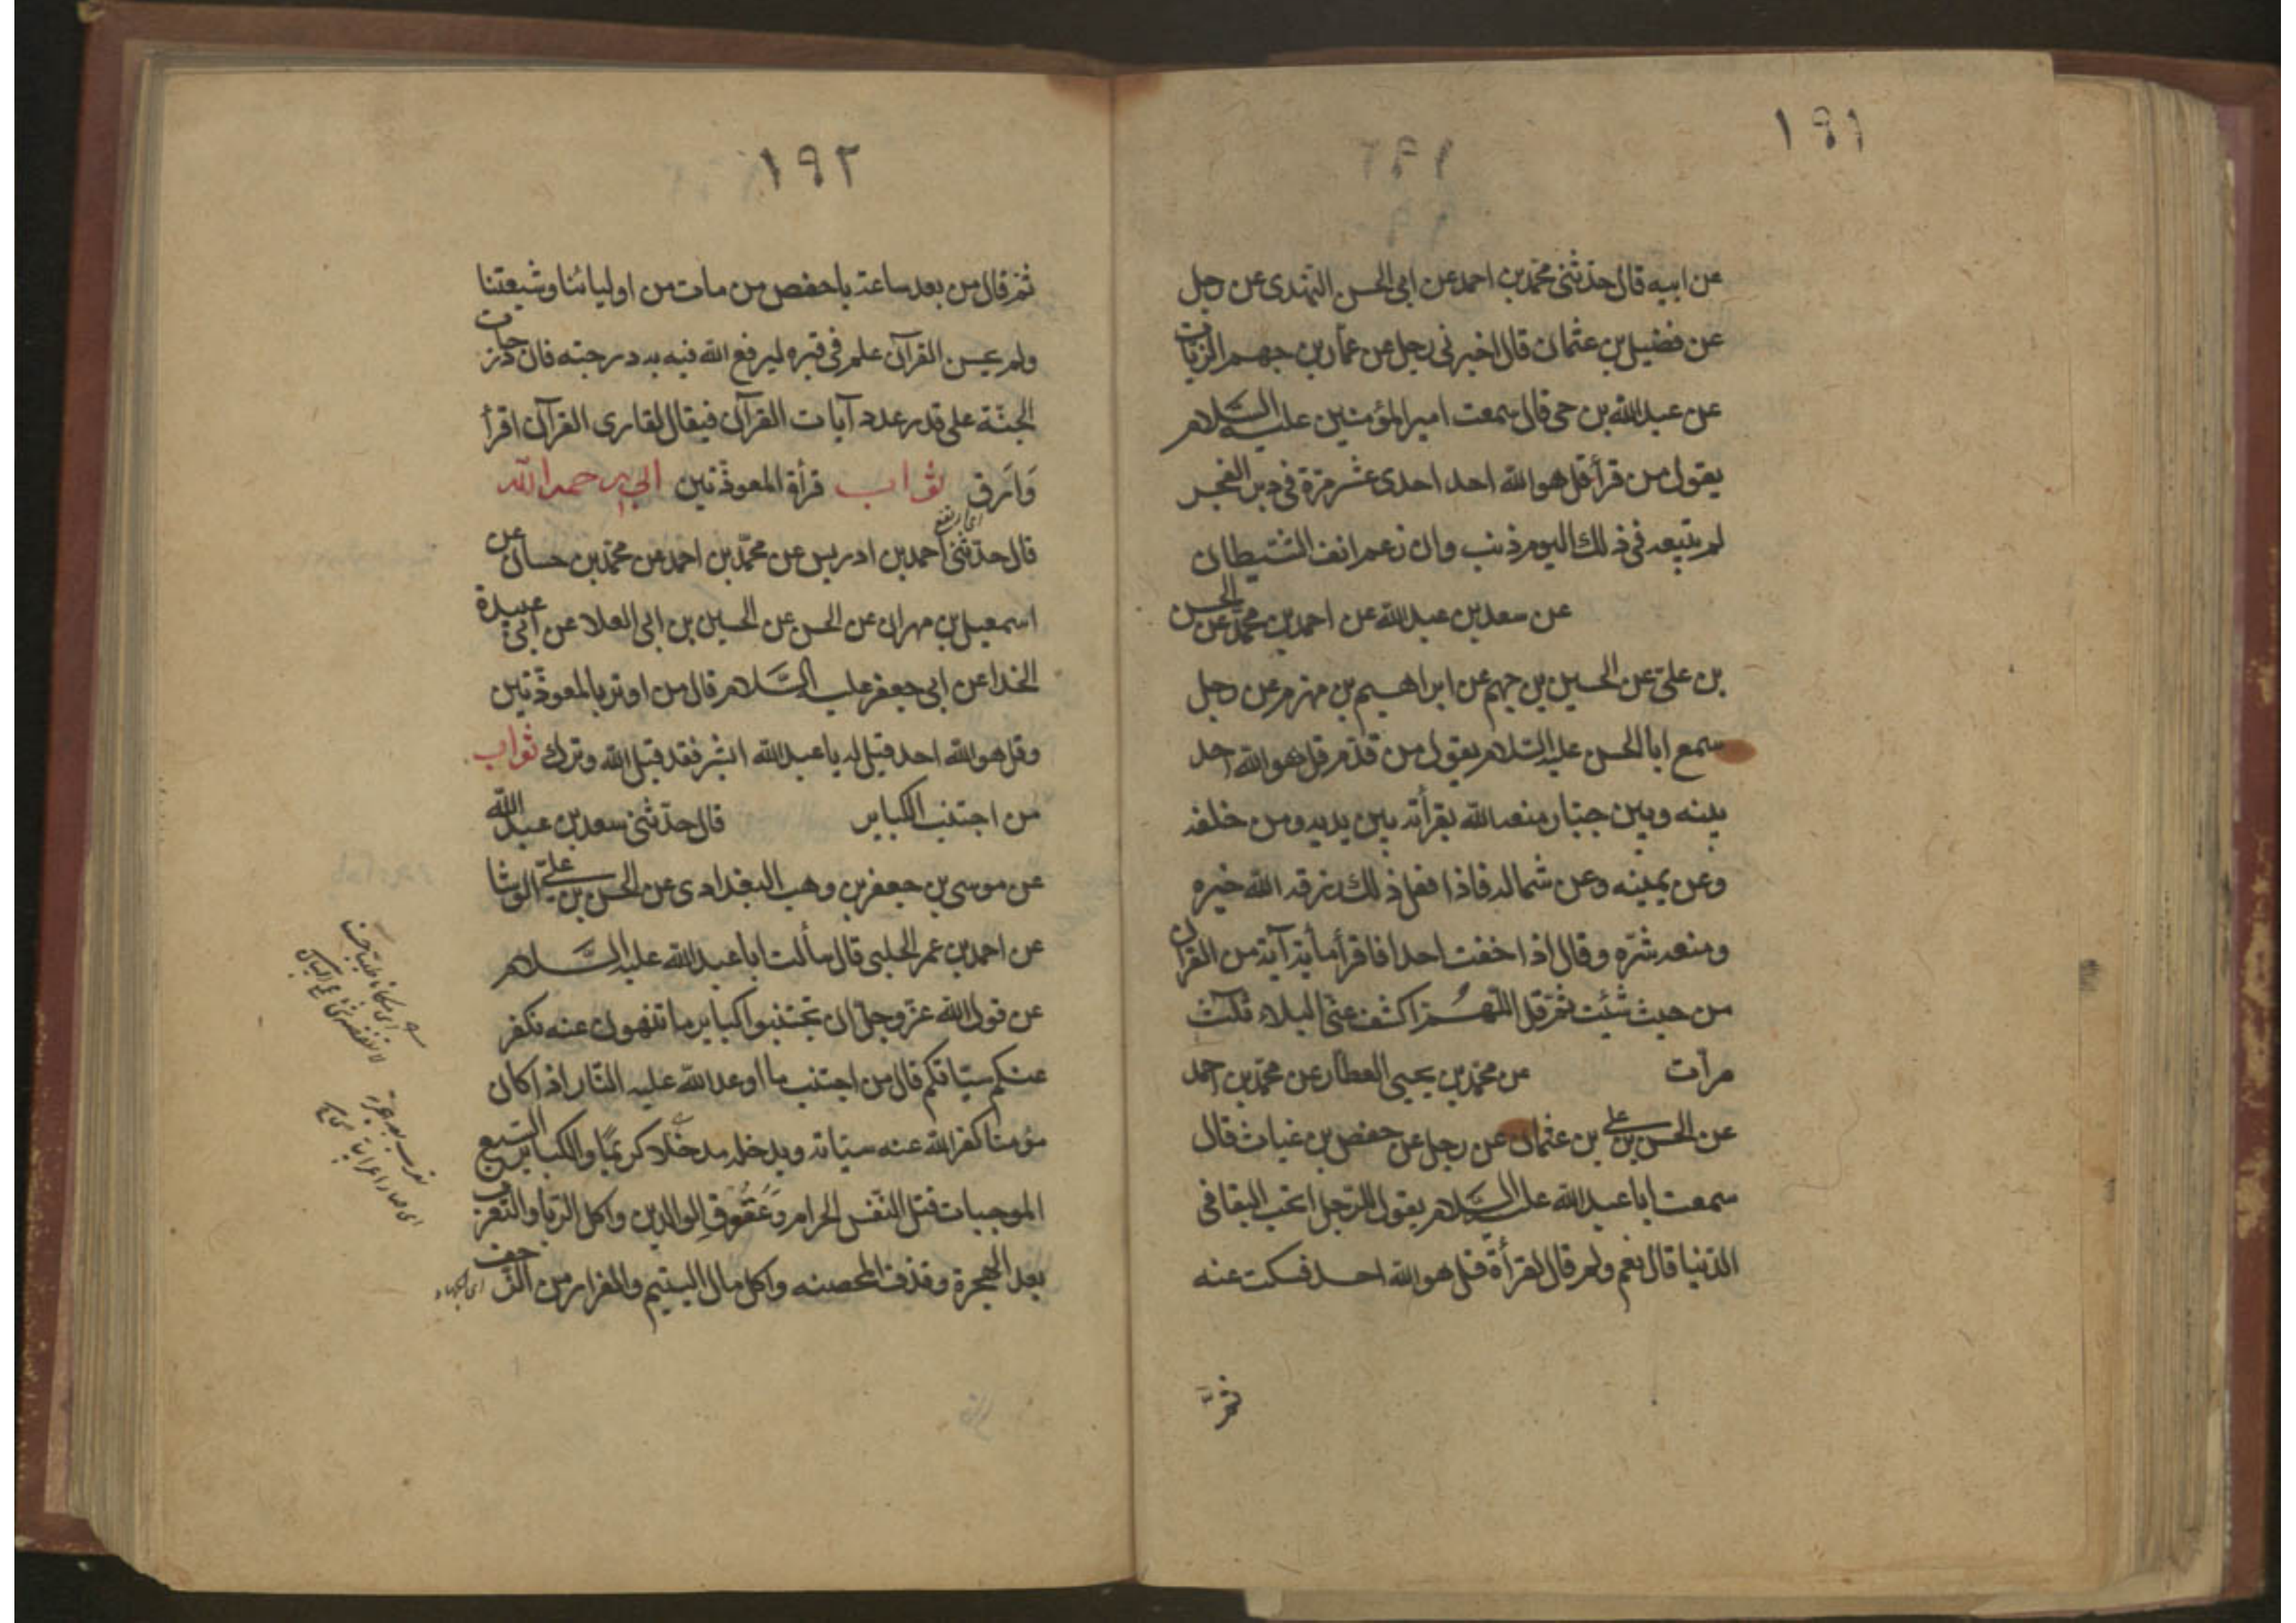 ١٩١
عن ابيه قال حدثنى محمد بن احمد عن ابى الحسن النهدى عن رجل
عن فضيل بن عثمان قال اخبرنى رجل عن عمار بن جهم الزيات
عن عبد الله بن حى قال سمعت امير المؤمنين عليه السلام
يقول من قرأ قل هو الله احد احدى عشر مرة فى دبر الفجر
لم يتبعه فى ذلك اليوم ذنب وان زعم انف الشيطان
عن سعد بن عبد الله عن احمد بن محمد عن الحسن
بن على عن الحسين بن جهم عن ابراهيم بن مهزم عن رجل
سمع ابا الحسن عليه السلام يقول من قدم قل هو الله احد
بينه وبين جبار منعه الله يقرأته بين يديه ومن خلفه
وعن يمينه وعن شماله فاذا فعل ذلك رزقه الله خيره
ومنعه شره وقال اذا خفت احدا فاقرأ مأية آية من القرآن
من حيث شئت ثم قل اللهم اكشف عنى البلاء ثلث
مرات عن محمد بن يحيى العطار عن محمد بن احمد
عن الحسن بن على بن عثمان عن رجل عن حفص بن غياث قال
سمعت ابا عبد الله عليه السلام يقول للرجل اتحب البقا فى
الدنيا قال نعم ولم قال لقرأة قل هو الله احد فسكت عنه
ثم
١٩٢
ثم قال من بعد ساعة ياحفص من مات من اوليائنا وشيعتنا
ولم يحسن القرآن علم فى قبره ليرفع الله فيه به درجته فان درجات
الجنة على قدر عدد آيات القرآن فيقال لقارى القرآن اقرأ
وَارق ثواب قرأة المعوذتين ابى رحمه الله
اى ارتفع
قال حدثنى احمد بن ادريس عن محمد بن احمد عن محمد بن حسان عن
اسمعيل بن مهران عن الحسن عن الحسين بن ابى العلا عن ابى عبيدة
الحذا عن ابى جعفر عليه السلام قال من اوتر بالمعوذتين
وقل هو الله احد قيل له ياعبد الله ابشر فقد قبل الله وترك ثواب
من اجتنب الكباير قال حدثنى سعد بن عبد الله
عن موسى بن جعفر بن وهب البغدادى عن الحسن بن على الوشا
عن احمد بن عمر الحلبى قال سألت ابا عبد الله عليه السلام
عن قول الله عز وجل ان تجتنبوا كباير ما تنهون عنه نكفر
عنكم سيئاتكم قال من اجتنب ما اوعد الله عليه النار اذا كان
مؤمنا كفر الله عنه سيئاته ويدخله مدخلا كريما والكباير السبع
الموجبات قتل النفس الحرام وعقوق الوالدين واكل الربا والتعرب
بعد الهجرة وقذف المحصنه واكل مال اليتيم والفرار من الزحف
اى الجهاد
تعرب بعد هجرة
اى صار اعرابيا